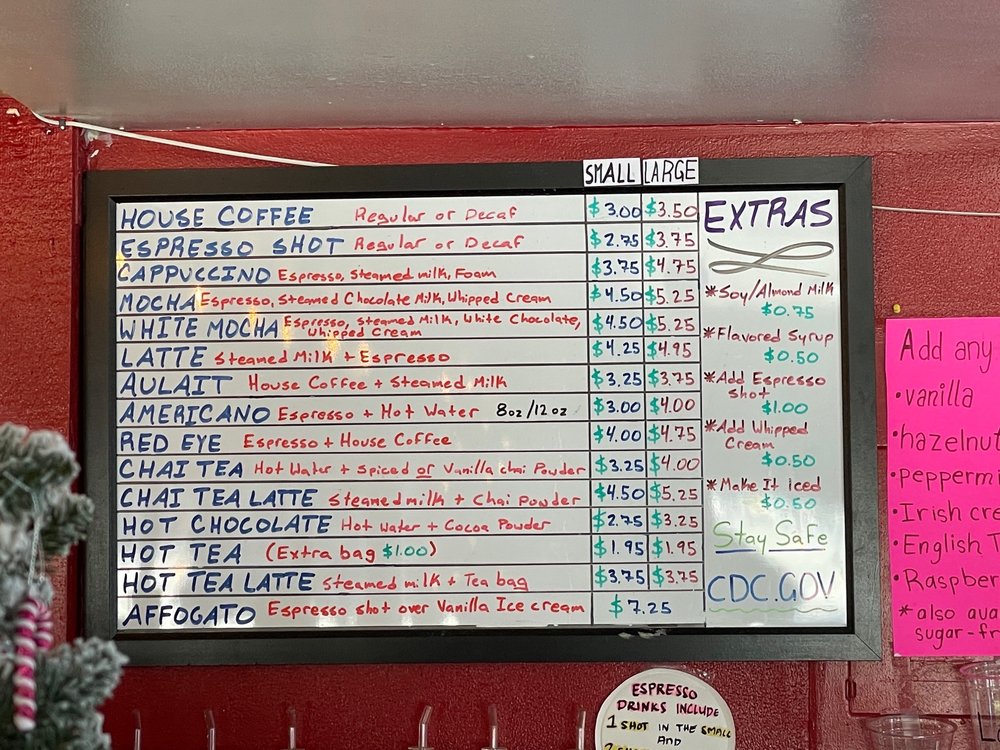 SMALL LARGE
HOUSE COFFEE Regular or Decaf $3.00 $3.50
ESPRESSO SHOT Regular or Decaf $2.75 $3.75
CAPPUCCINO Espresso, Steamed milk, Foam $3.75 $4.75
MOCHA Espresso, Steamed Chocolate Milk, Whipped Cream $4.50 $5.25
WHITE MOCHA Espresso, Steamed Milk, White Chocolate, $4.50 $5.25
Whipped Cream
LATTE Steamed Milk + Espresso $4.25 $4.95
AULAIT House Coffee + Steamed Milk $3.25 $3.75
AMERICANO Espresso + Hot Water 8oz/12oz $3.00 $4.00
RED EYE Espresso + House Coffee $4.00 $4.75
CHAI TEA Hot Water + Spiced or Vanilla chai Powder $3.25 $4.00
CHAI TEA LATTE Steamed milk + Chai Powder $4.50 $5.25
HOT CHOCOLATE Hot Water + Cocoa Powder $2.75 $3.25
HOT TEA (Extra bag $1.00) $1.95 $1.95
HOT TEA LATTE Steamed milk + Tea bag $3.75 $3.75
AFFOGATO Espresso shot over Vanilla Ice cream $7.25
EXTRAS
*Soy/Almond Milk
$0.75
*Flavored Syrup
$0.50
*Add Espresso
shot
$1.00
*Add Whipped
Cream
$0.50
*Make It iced
$0.50
Stay Safe
CDC.GOV
Add any
•vanilla
•hazelnut
•peppermi
•Irish cre
•English T
•Raspber
*also ava
sugar-fr
ESPRESSO
DRINKS INCLUDE
1 SHOT IN THE SMALL
AND